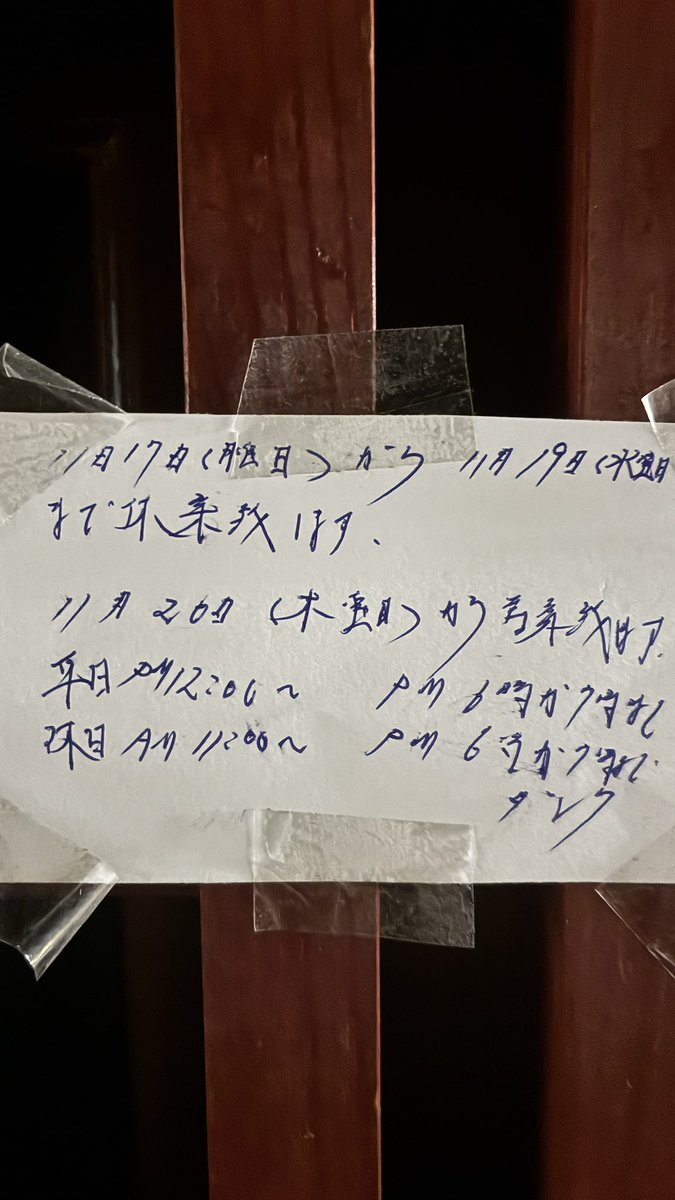 11月17日(月曜日)から 11月19日(水曜日
まで休業致します、
11月20日(木曜日)から営業致します。
平日PM12:00〜 PM 6時か7時まで
休日AM11:00〜 PM 6時か7時まで